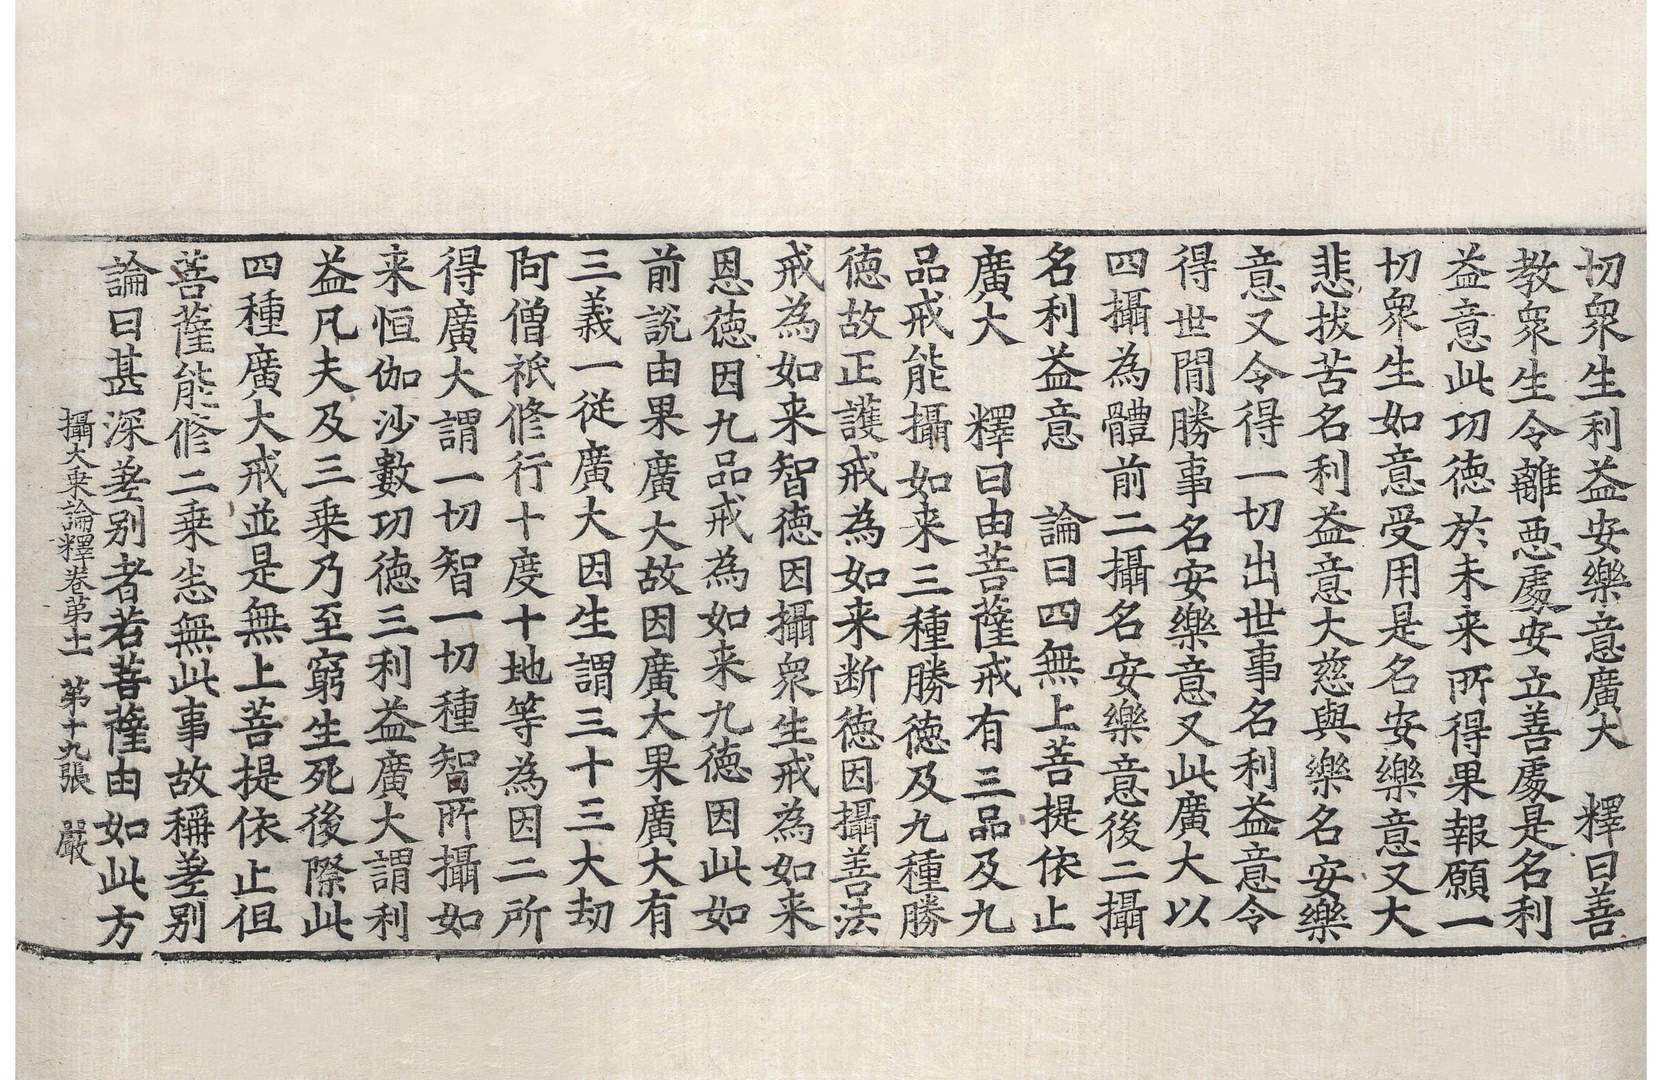 切衆生利益安樂意廣大　釋曰善
教衆生令離惡處安立善處是名利
益意此功德於未来所得果報願一
切衆生如意受用是名安樂意又大
悲拔苦名利益意大慈與樂名安樂
意又令得一切出世事名利益意令
得世間勝事名安樂意又此廣大以
四攝為體前二攝名安樂意後二攝
名利益意　論曰四無上菩提依止
廣大　釋曰由菩薩戒有三品及九
品戒能攝如来三種勝德及九種勝
德故正護戒為如来断德因攝善法
戒為如来智德因攝衆生戒為如来
恩德因九品戒為如来九德因此如
前說由果廣大故因廣大果廣大有
三義一從廣大因生謂三十三大劫
阿僧祇修行十度十地等為因二所
得廣大謂一切智一切種智所攝如
来恒伽沙數功德三利益廣大謂利
益凡夫及三乗乃至窮生死後際此
四種廣大戒並是無上菩提依止但
菩薩能修二乗悉無此事故稱差别
論曰甚深差别者若菩薩由如此方
攝大乗論釋卷第十一　第十九張　嚴